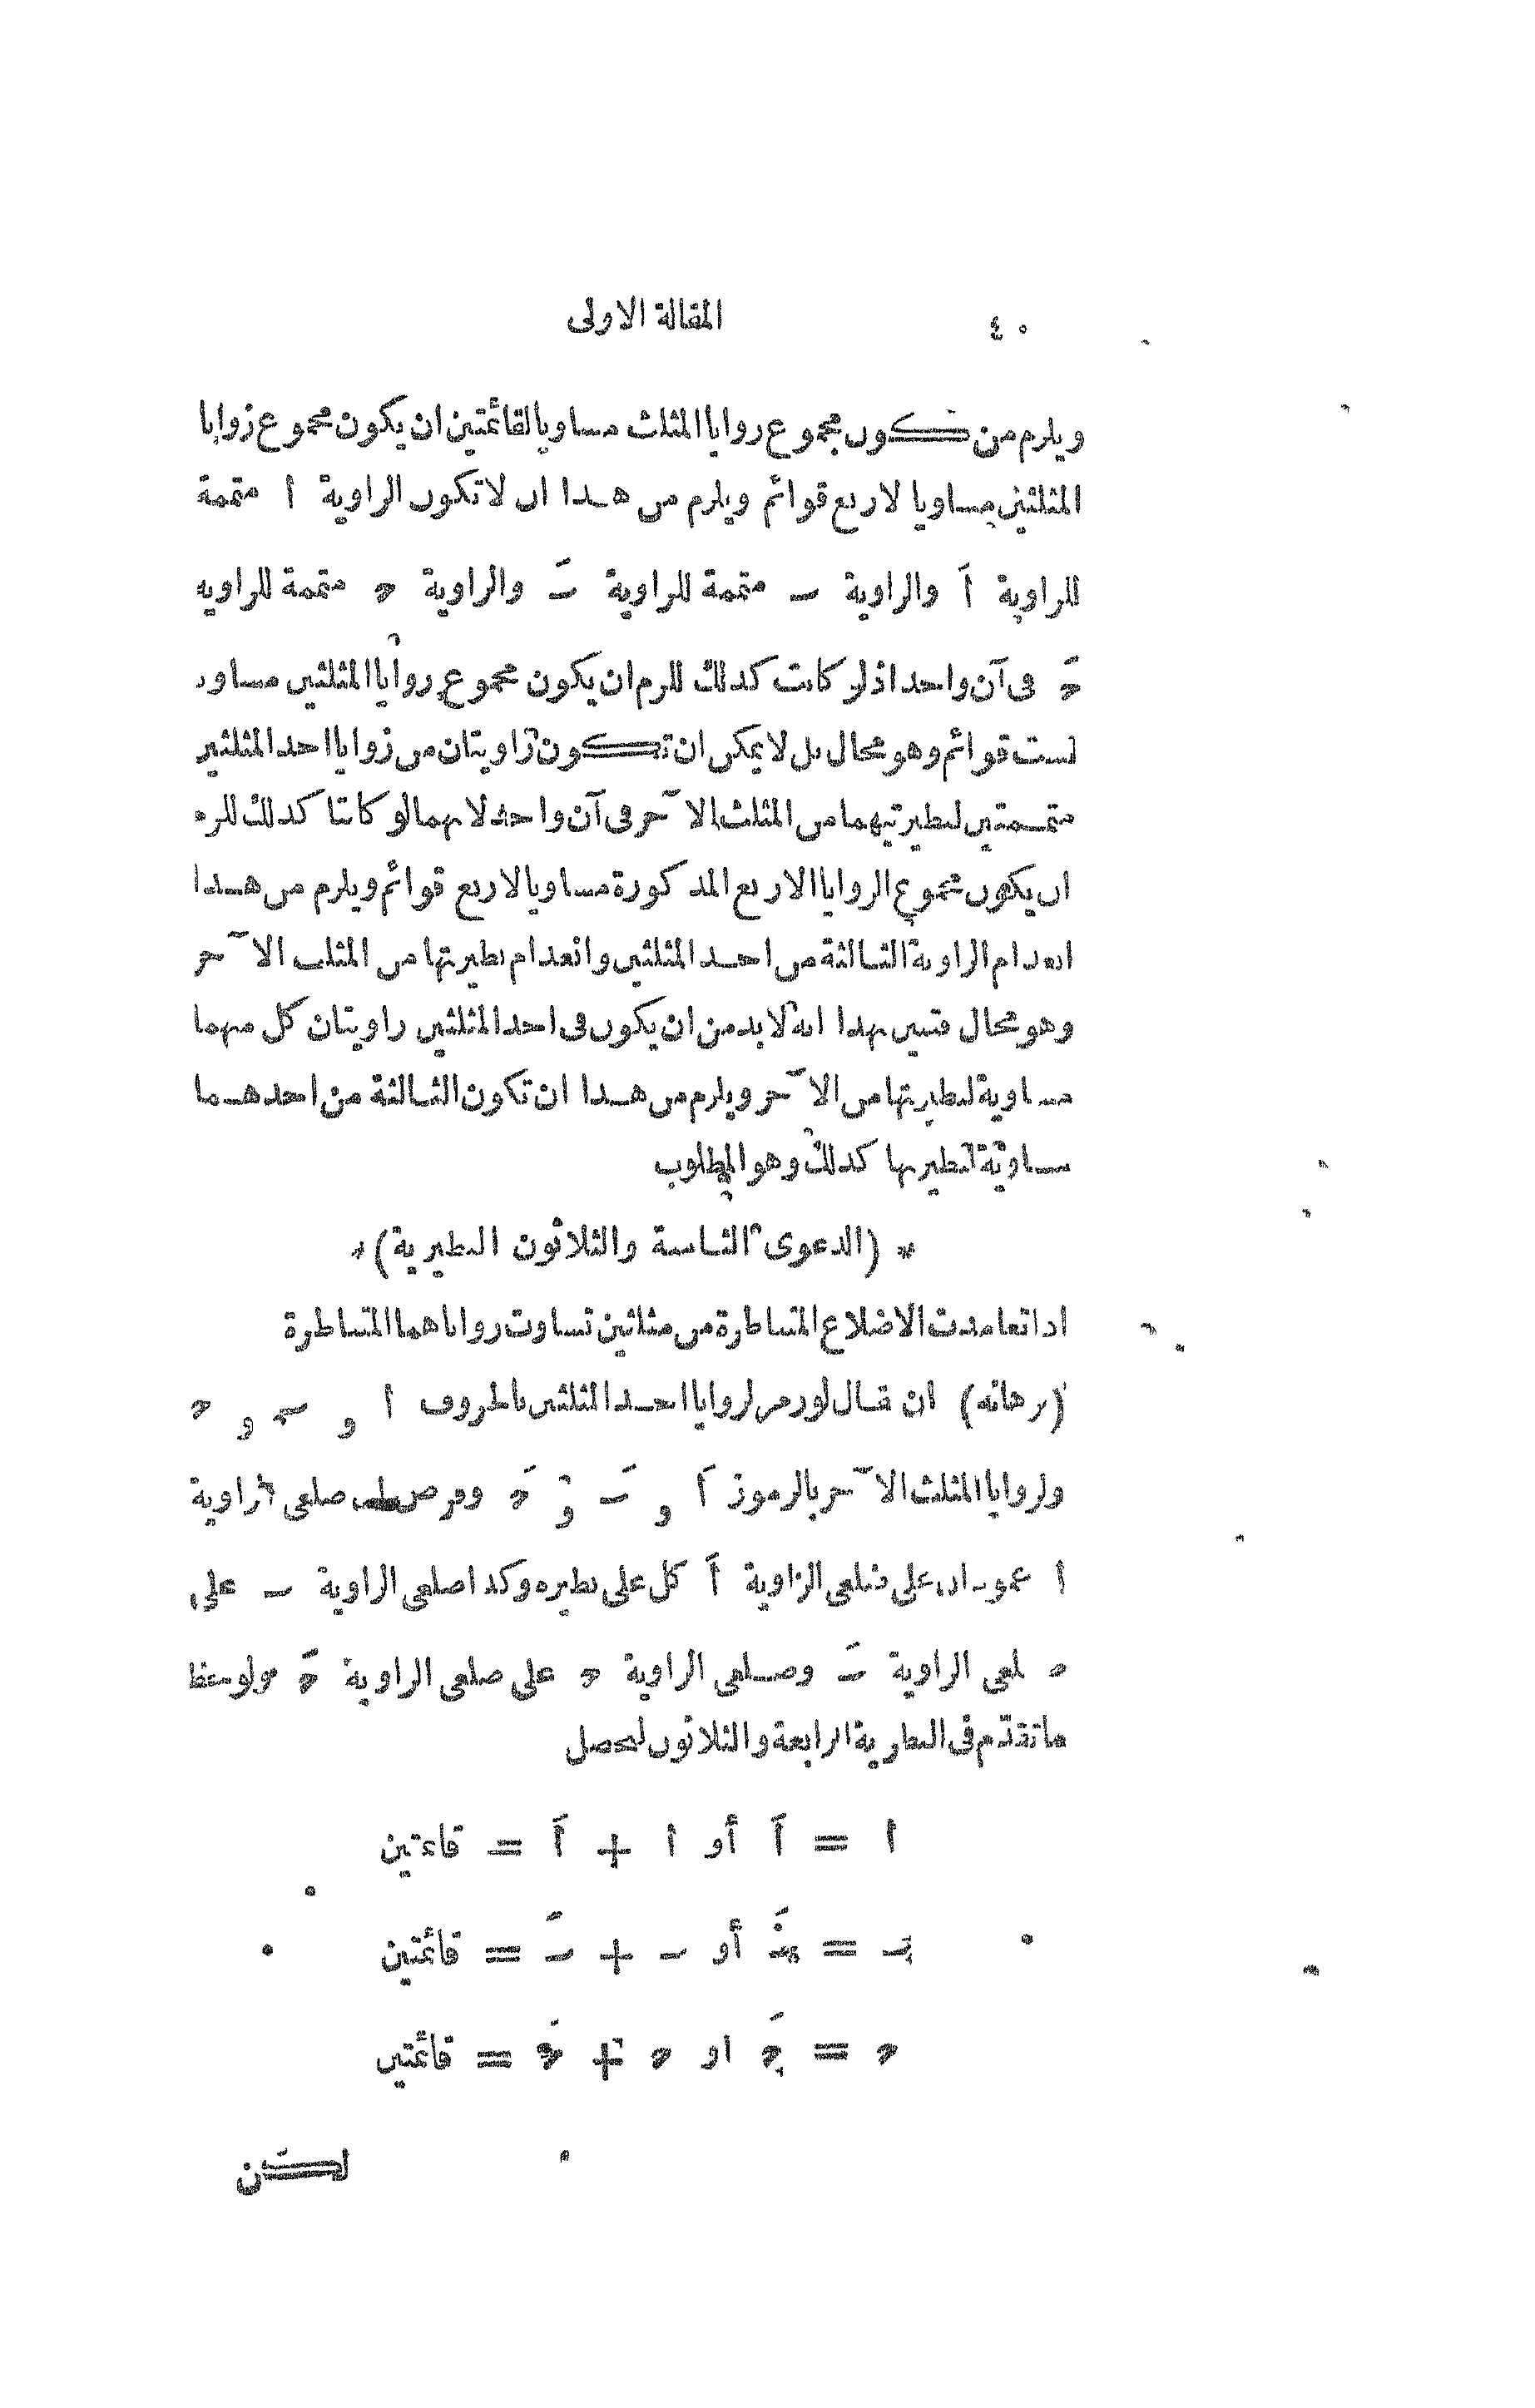 ٤٠ المقالة الاولى
ويلزم من كون مجموع زوايا المثلث مساويا لقائمتين ان يكون مجموع زوايا
المثلثين مساويا لاربع قوائم ويلزم من هذا ان لا تكون الزاوية أ متممة
للزاوية أَ والزاوية ب متممة للزاوية بَ والزاوية ح متممة للزاوية
حَ فى آن واحد اذ لو كانت كذلك للزم ان يكون مجموع زوايا المثلثين مساويا
لست قوائم وهو محال بل لا يمكن ان تكون زاويتان من زوايا احد المثلثين
متممتين لنظيرتيهما من المثلث الآخر فى آن واحد لانهما لو كانتا كذلك للزم
ان يكون مجموع الزوايا الاربع المذكورة مساويا لاربع قوائم ويلزم من هذا
انعدام الزاوية الثالثة من احد المثلثين وانعدام نظيرتها من المثلث الآخر
وهو محال فتبين بهذا انه لابد من ان يكون فى احد المثلثين زاويتان كل منهما
مساوية لنظيرتها من الآخر ويلزم من هذا ان تكون الثالثة من احدهما
مساوية لنظيرتها كذلك وهو المطلوب
* (الدعوى الثامنة والثلاثون النظيرية) *
اذا تعامدت الاضلاع المتناظرة من مثلثين تساوت زواياهما المتناظرة
(برهانه) ان يقال لو رمز لزوايا احد المثلثين بالحروف أ و ب و ح
ولزوايا المثلث الآخر بالرموز أَ و بَ و حَ وفرض ضلعى الزاوية
أ عمودان على ضلعى الزاوية أَ كل على نظيره وكذا ضلعى الزاوية ب على
ضلعى الزاوية بَ وضلعى الزاوية ح على ضلعى الزاوية حَ ولوحظ
ما تقدّم فى النظرية الرابعة والثلاثون لحصل
ا = أَ أو ا + أَ = قائمتين
ب = بَ أو ب + بَ = قائمتين
ح = حَ او ح + حَ = قائمتين
لكن